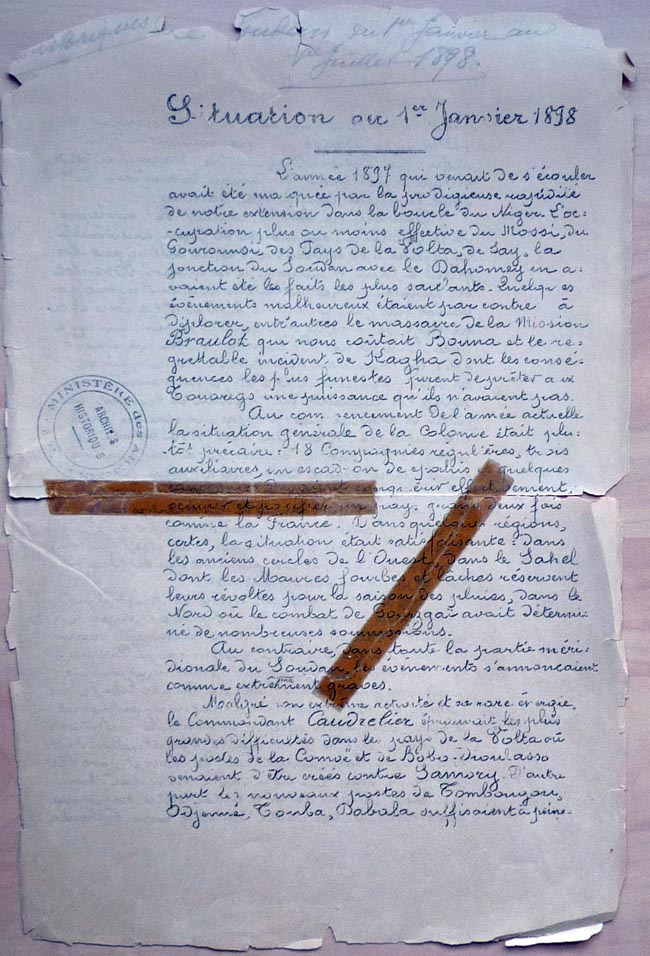 Soudan du 1er Janvier au
1er Juillet 1898.
Situation au 1er Janvier 1898
L'année 1897 qui venait de s'écouler
avait été marquée par la prodigieuse rapidité
de notre extension dans la boucle du Niger. L'oc-
-cupation plus ou moins effective du Mossi, du
Gourounsi, des Pays de la Volta, de Say, la
jonction du Soudan avec le Dahomey en a-
vaient été les faits les plus saillants. Quelques
évènements malheureux étaient par contre à
déplorer, entr'autres le massacre de la Mission
Braulot qui nous coûtait Bouna et le re-
grettable incident de Kagha dont les consé-
quences les plus funestes furent de prêter aux
Touaregs une puissance qu'ils n'avaient pas.
Au commencement de l'année actuelle
la situation générale de la Colonie était plu-
tôt précaire : 18 Compagnies regulières, trois
auxiliaires, un escadron de spahis quelques
canons
occuper et pacifier un pays grand deux fois
comme la France. Dans quelques régions,
certes, la situation était satisfaisante dans
les anciens cercles de l'Ouest, dans le Sahel
dont les Maures fourbes et lâches réservent
leurs révoltes pour la saison des pluies, dans le
Nord où le combat de avait détermi-
né de nombreuses soumissions.
Au contraire, dans toute la partie méri-
dionale du Soudan, les évènements s'annonçaient
comme extrêmement graves.
Malgré son extrême activité et sa rare énergie
le Commandant Caudrelier éprouvait les plus
grandes difficultés dans le pays de la Volta où
les postes de la Comoë et de Bobo-Dioulasso
venaient d'être créés contre Samory. D'autre
part les nouveaux postes de Tombougou,
Odjenné, Touba, Dabala suffisaient à peine
MINISTÈRE des
ARCHIVES
HISTORIQUES